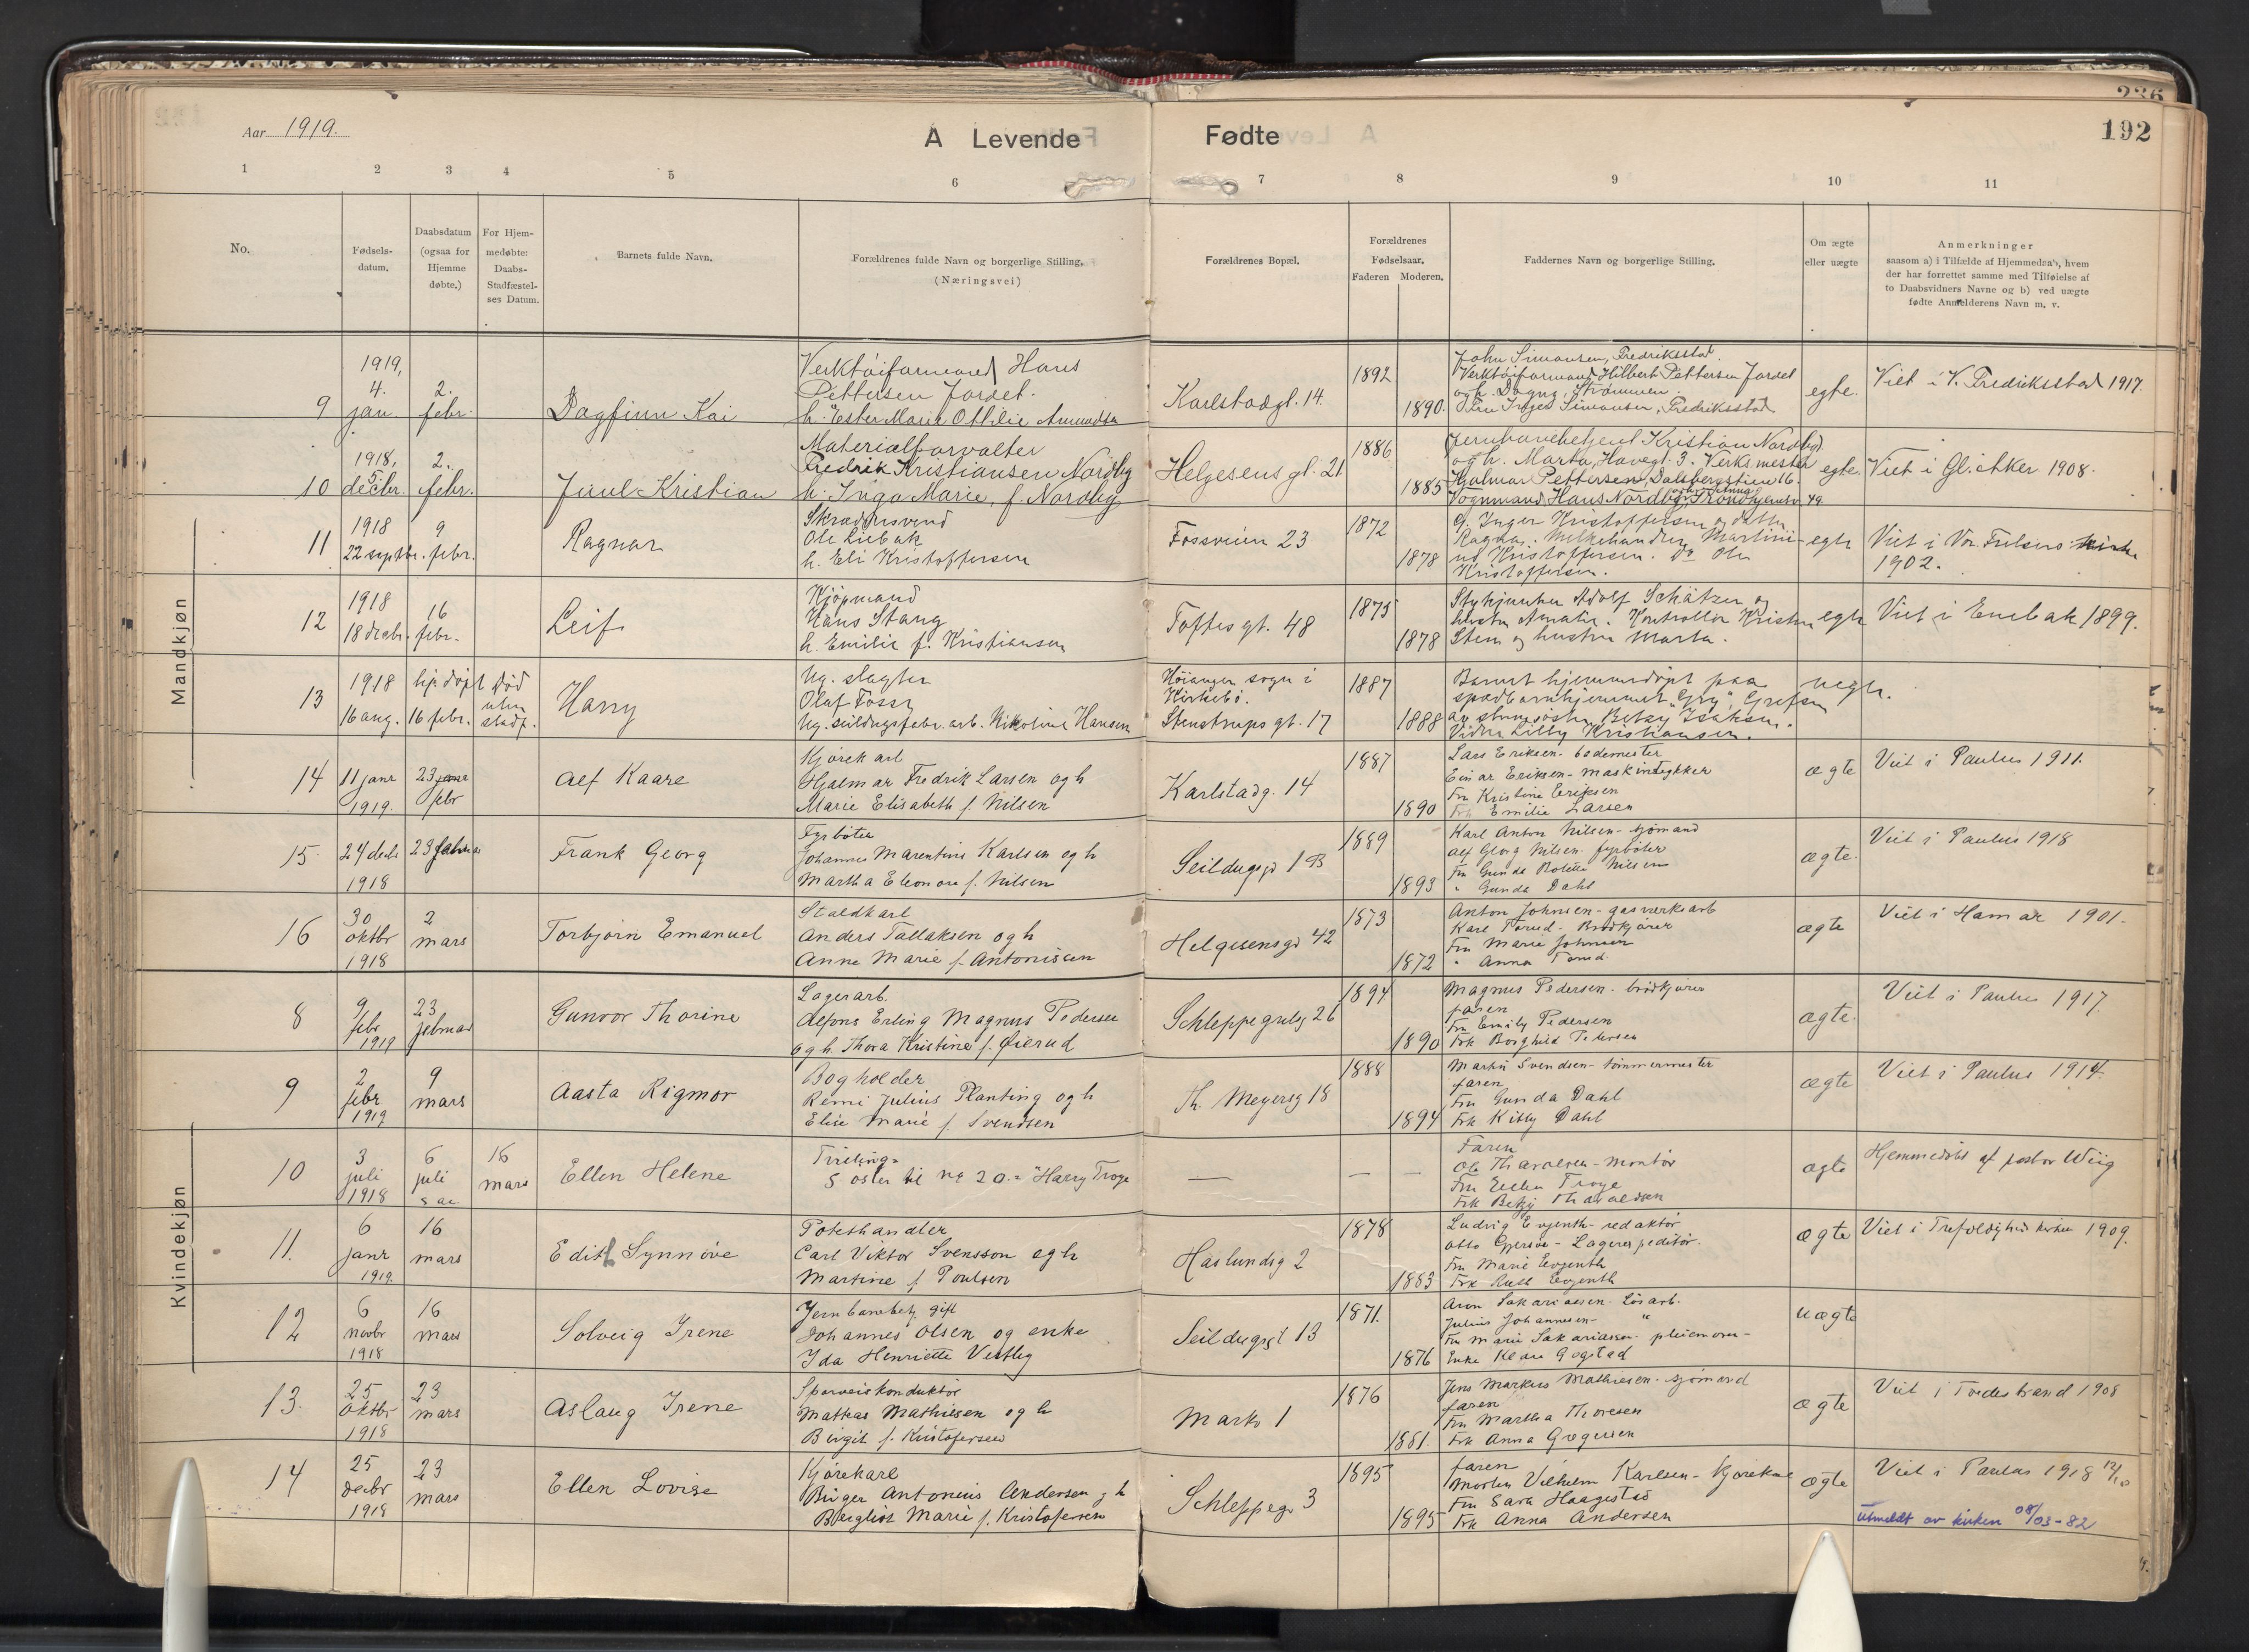 236
192
Aar 1919.
A Levende Fødte
1 2 3 4 5 6 7 8 9 10 11
No.
Fødsels-
datum.
Daabsdatum
(ogsaa for
Hjemme
døbte.)
For Hjem-
medøbte:
Daabs-
Stadfæstel-
ses Datum.
Barnets fulde Navn.
Forældrenes fulde Navn og borgerlige Stilling.
(Næringsvei)
Forældrenes Bopæl.
Forældrenes
Fødselsaar.
Faderen Moderen.
Faddernes Navn og borgerlige Stilling.
Om ægte
eller uægte
Anmerkninger
saasom a) i Tilfælde af Hjemmedaab, hvem
der har forrettet samme med Tilføielse af
to Daabsvidners Navne og b) ved uægte
fødte Anmelderens Navn m. v.
Mandkjøn
9
1919,
4.
jan.
2.
febr.
Dagfinn Kai
Verktöiformand Hans
Pettersen Jordet.
h. Ester Marie Ottilie Amundsen
Karlstadgt. 14.
1892
1890.
John Simonsen, Fredriksstad.
Verktöiformand Hilbert Pettersen Jordet
og h. Dagny, Strømmen.
Fru Inga Simonsen, Fredriksstad.
egte.
Viet i V. Fredriksstad 1917
10
1918,
5.
decbr.
2.
febr.
Juul Kristian
Materialforvalter
Fredrik Kristiansen Nordby
h. Inga Marie, f. Nordby
Helgesens gt. 21.
1886
1885
Jernbanebetjent Kristian Nordby
og h. Marta, Havegt. 3. Verksmester
Hjalmar Pettersen, Dalsbergstien 16.
Vognmand Hans Nordby, Trondhjemsv. 49.
egte.
Viet i Gl. Aker 1908.
11
1918
22 septbr.
9
febr.
Ragnar
Skrædersvend
Ole Liebak
h. Eli Kristoffersen
Fossveien 23
1872
1878
G. Inger Kristoffersen og datter
Ragna. Melkehandler Martini-
us Kristoffersen. Do Ole
Kristoffersen.
egte
Viet i Vor Frelsers Kirke
1902.
12
1918
18 decbr.
16
febr.
Leif
Kjøpmand
Hans Stang
h. Emilie f. Kristiansen
Toftes gt. 48
1875
1878
Stykjunker Adolf Schätzer og
hustru Amalie. Kontrollör Kristen
Sten og hustru Marta.
egte
Viet i Enebak 1899.
13
1918
16 aug.
hj. døpt
16 febr.
Død
uten
stadf.
Harry
Ug. slagter
Olaf Foss,
Ug. seildugsfabr. arb. Nikoline Hansen
Höianger sogn i
Kirkebö.
Stenstrups gt. 17
1887
1888
Barnet hjemmedöpt paa
spædbarnhjemmet "Gry", Grefsen
av stuesøster Betzy Isaksen.
Vidne Lilly Kristiansen.
uegte.
14
11 janr
1919.
23 janr
febr
Alf Kaare
Kjørekarl
Hjalmar Fredrik Larsen og h
Marie Elisabeth f. Nilsen
Karlstadg. 14
1887
1890
Lars Eriksen - bademester
Einar Eriksen - maskintrykker
Fru Kristine Eriksen
Frk Emilie Larsen
ægte
Viet i Paulus 1911.
15.
24 decb
1918
23 februar
Frank Georg
Fyrbøter
Johannes Marentius Karlsen og h
Martha Eleonore f. Nilsen
Seildugsgt 1 B
1889
1893
Karl Anton Nilsen - sjømand
Alf Georg Nilsen fyrbøter
Fru Gunda Bolette Nilsen
" Gunda Dahl
ægte.
Viet i Paulus 1918
16
30
oktbr
1918
2
mars
Torbjørn Emanuel
Staldkarl
Anders Tallaksen og h
Anne Marie f. Antonissen
Helgesensgt 42
1873
1872
Anton Johnsen - gasværksarb
Karl Torud - Brødkjører
Fru Marie Johnsen
" Anna Torud
ægte
Viet i Hamar 1901.
Kvindekjøn
8
9
febr
1919
23
februar
Gunvor Thorine
Lagerarb.
Alfons Erling Magnus Pedersen
og h. Thora Kristine f. Øierud
Schleppegrelsg 26
1894
1890
Magnus Pedersen - brødkjører
faren
Fru Emily Pedersen
Frk Borghild Petersen
ægte.
Viet i Paulus 1917.
9
2
febr
1919
9
mars
Aasta Rigmor
Bogholder
Remi Julius Planting og h
Elise Marie f. Svendsen
Th. Meyersg 18
1888
1894
Martin Svendsen - tømmermester
faren
Fru Gunda Dahl
Frk Kitty Dahl
ægte
Viet i Paulus 1914.
10
3
juli
1918
6
juli
s. a.
16
mars
Ellen Helene
Tvilling=
søster til no 20. = "Harry Troye
— — —
Faren
Ole Tharaldsen - montør
Fru Ellen Troye
Frk Betzy Tharaldsen
ægte
Hjemmedøbt af pastor Wiig
11.
6
janr
1919.
16
mars
Edith Synnøve
Potethandler
Carl Viktor Svensson og h
Martine f. Poulsen
Haslundsg 2
1878
1883
Ludvig Evjenth - redaktør
Otto Gjersøe - Lagerexpeditør.
Fru Marie Evjenth
Frk Ruth Evjenth
ægte
Viet i Trefoldighedskirken 1909.
12
6
novbr
1918
16
mars
Solveig Irene
Jernbanebetj. gift
Johannes Olsen og enke
Ida Henriette Vestby
Seildugsgt 13
1871.
1876
Aron Sakariassen - Løsarb.
Julius Johannesen - "
Fru Marie Sakariassen - pleiemoren -
Enke Klara Gogstad
uægte
13.
25
oktbr
1918
23
mars
Aslaug Irene
Sporveiskonduktør
Mathas Mathiesen og h
Birgit f. Kristofersen
Markv 1
1876
1881.
Jens Markus Mathiesen - sjømand
faren
Fru Martha Thoresen
Frk Anna Gregersen
ægte
Viet i Tvedestrand 1908
14
25
decbr
1918
23
mars
Ellen Lovise
Kjørekarl
Birger Antonius Andersen og h
Bergliot Marie f. Kristofersen
Schleppegr 3
1895
1895
faren
Morten Vilhelm Karlsen - Kjørekarl
Fru Sara Haagestad
Frk Anna Andersen
ægte
Viet i Paulus 1918 12/10
Utmeldt av kirken 08/03-82